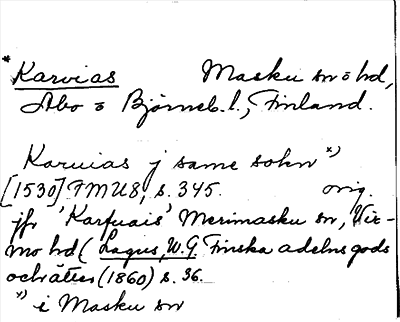 * Karvias Masku sn o hd,
Åbo o Björneb. l., Finland.
Karuias j same sokn *)
[1530] FMU8, s. 345. orig.
jfr 'Karfuais' Merimasku sn, Vir-
mo hd (Lagus, W.G. Finska adelns gods
och ätter (1860) s. 36.
*) i Masku sn